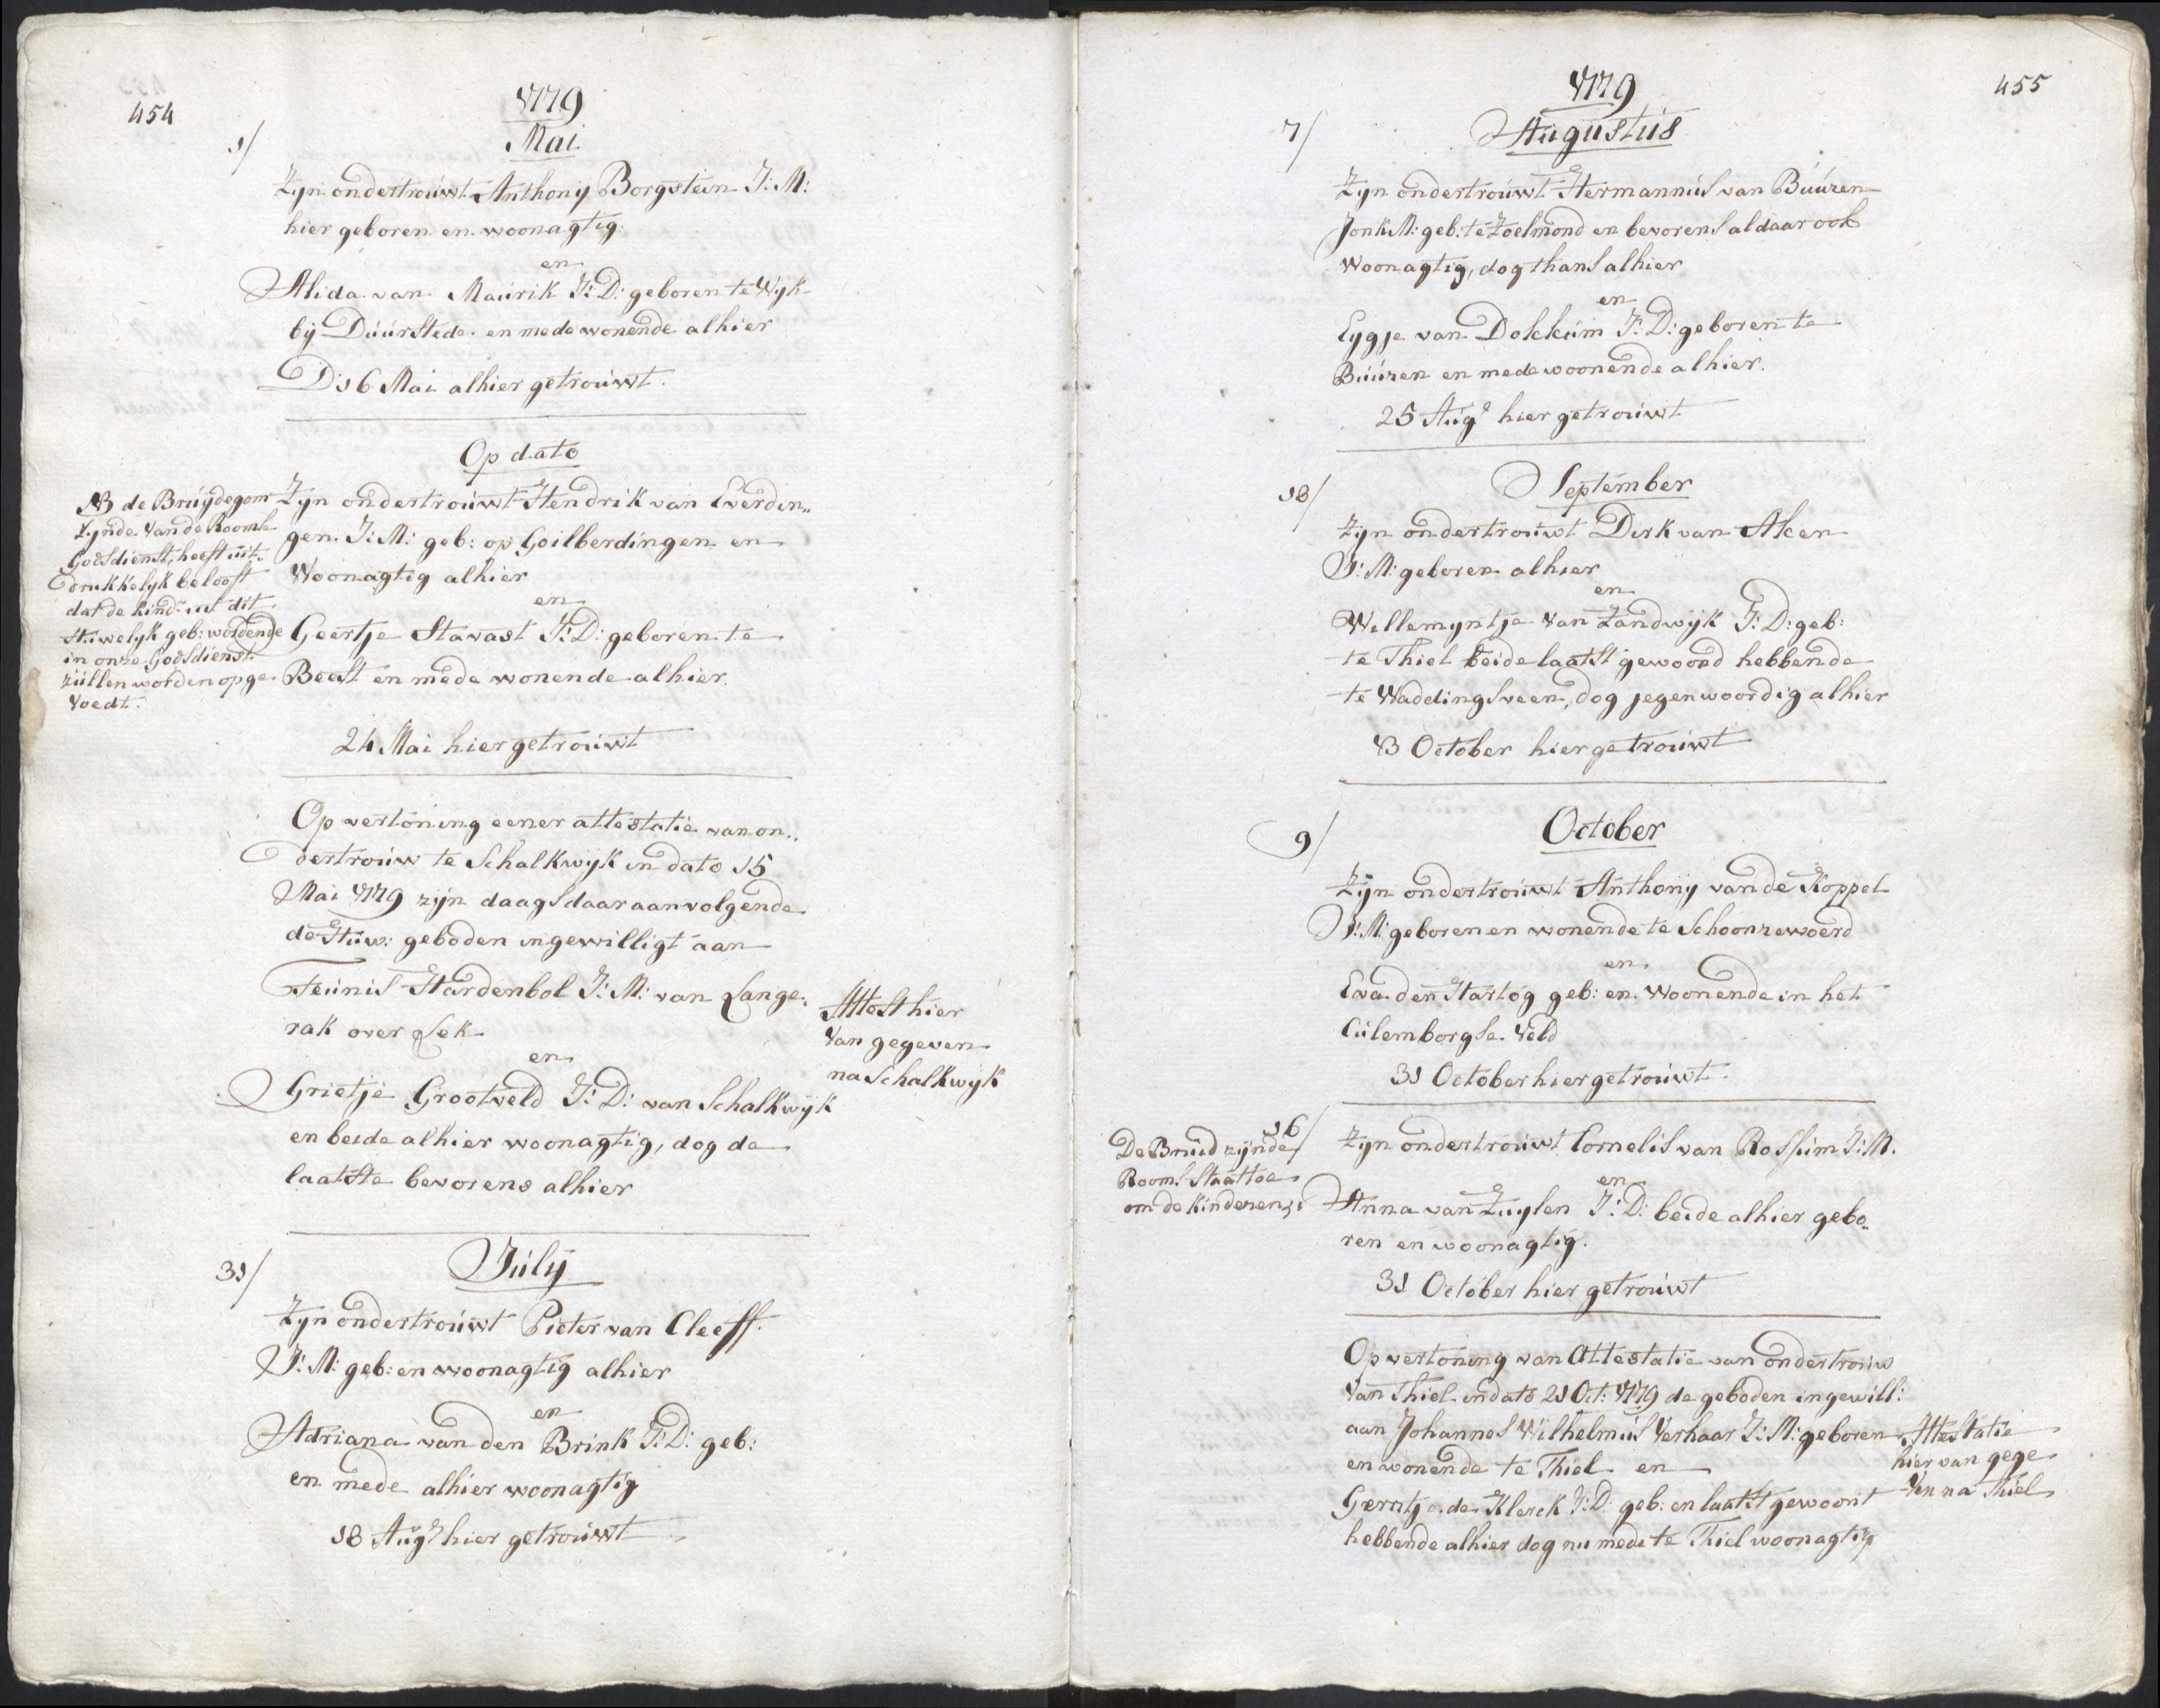 454
1779
Mai
1/
Zijn ondertrouwt Anthonij Borgstein J: M:
hier geboren en woonagtig.
en
Alida van Maurik J: D: geboren te Wyk
bij Duurstede en mede wonende alhier
D 16 Mai alhier getrouwt.
Op dato
NB de Bruydegom
zynde van de Roomse
Godsdienst, heeft uit-
drukkelyk belooft
dat de kind: uit dit
Huwelyk geb: wordende
in onze Godsdienst
zullen worden opge
voedt.
Zyn ondertrouwt Hendrik van Everdin„
gen J: M: geb: op Goilberdingen en
Woonagtig alhier
en
Geertje Stavast J: D: geboren te
Beest en mede wonende alhier.
24 Mai hier getrouwt
Op vertoning eener attestatie van on„
dertrouw te Schalkwyk in dato 15
Mai 1779 zijn daags daar aanvolgende
de Huw: geboden ingewilligt aan
Teunis Hardenbol J: M: van Lange„
rak over Lek
en
Grietje Grootveld J: D: van Schalkwyk
en beide alhier woonagtig, dog de
laatste bevorens alhier
Attest hier
van gegeven
na Schalkwyk
July
31/
Zyn ondertrouwt Pieter van Cleeff.
J: M: geb: en woonagtig alhier
en
Adriana van den Brink J: D: geb:
en mede alhier woonagtig
18 Aug? hier getrouwt
455
1779
Augustus
7/
Zyn ondertrouwt Hermannus van Buuren
Jonk M: geb: te Zoelmond en bevorens aldaar ook
woonagtig, dog thans alhier
en
Eygje van Dokkum J: D: geboren te
Buuren en mede woonende alhier.
25 Aug? hier getrouwt
September
18/
Zyn ondertrouwt Dirk van Aken
J: M: geboren alhier
en
Willemyntje van Zandwyk J: D: geb:
te Thiel beide laatst gewoond hebbende
te Waddingsveen, dog jegenwoordig alhier
13 October hier getrouwt
October
9/
Zyn ondertrouwt Anthony van de Koppel
J: M: geboren en wonende te Schoonrewoerd
en
Eva den Hartog geb: en woonende in het
Culemborgse Veld
31 October hier getrouwt
16/
De Bruid zynde
Rooms Staat toe
om de kinderen &c
Zyn ondertrouwt Cornelis van Rossum J: M.
en
Anna van Zuylen J: D: beide alhier gebo„
ren en woonagtig.
31 October hier getrouwt
Op vertoning van Attestatie van ondertrouw
van Thiel in dato 21 Oct: 1779 de geboden ingewill:
aan Johannes Wilhelmus Verhaar J: M: geboren
en wonende te Thiel en
Gerritje de Klerck J: D: geb: en laatst gewoont
hebbende alhier dog nu mede te Thiel woonagtig
Attestatie
hier van gege
ven na Thiel